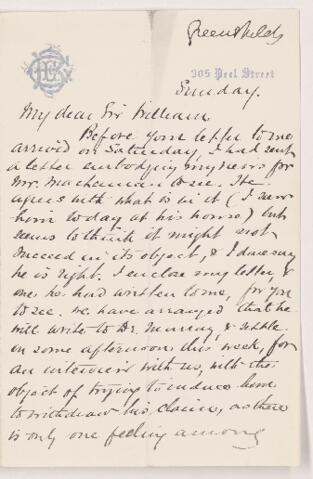 Greenshields
305 Peel Street
Sunday.
My dear Sir William
Before your letter to me
arrived on Saturday, I had sent
a letter embodying my views for
Mr. Mackennan to see. He
agrees with what is in it (I saw
him to day at his house) but
seems to think it might not
succeed in its object, & I dare say
he is right. I enclose my letter, &
one he had written to me, for you
to see. We have arranged that he
will write to Dr. Murray, & settle
on some afternoon this week, for
an interview with us, with the
object of trying to induce him
to withdraw his claim, as there
is only one feeling among